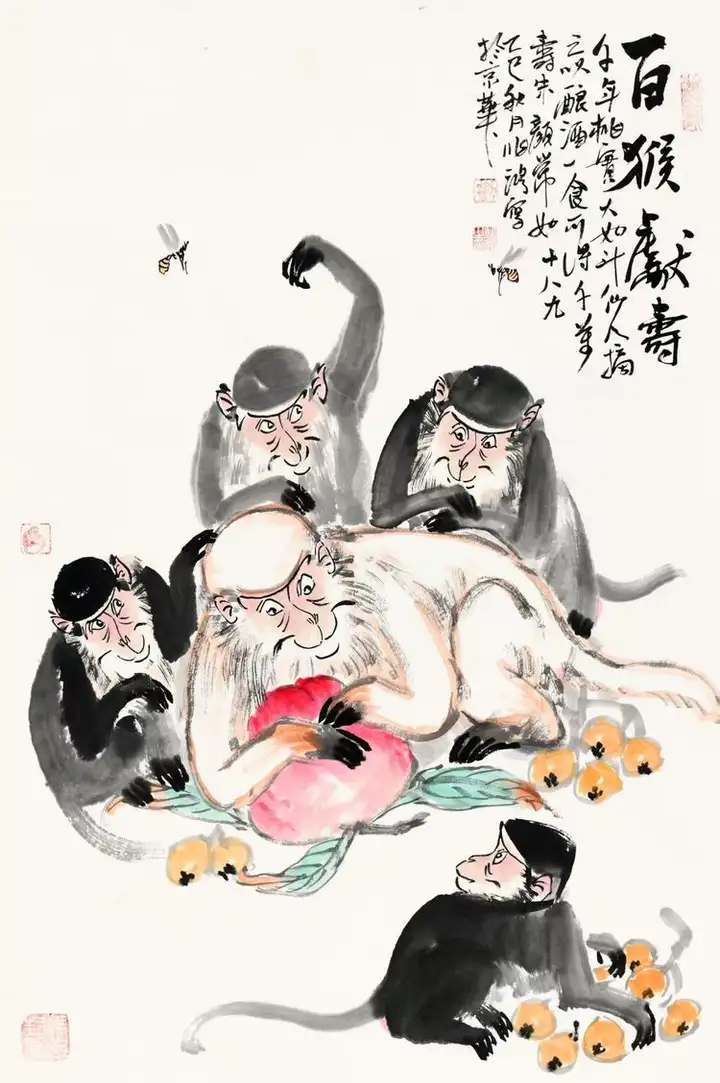 百猴獻壽
千年桃實大如斗仙人摘
之以酿酒一食可得千萬
壽朱顏常如十八九
乙巳秋月寫
於京華